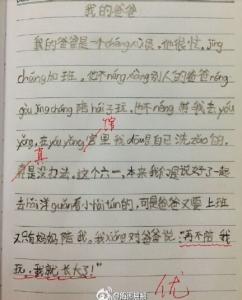 我的爸爸
我的爸爸是一个chǎng 民,他很忙,jīng
cháng加班,他不néng xiàng别人的爸爸néng
gòu jīngcháng陪hái子玩,他不néng 我去yóu
yǒng,去yóu yǒng馆里我dōu自己洗zǎo的,
真是没办法。这个六一,本来我 说好了一起
去hǎi洋guǎn看小 tún的,可是爸爸又要上班
又只有妈妈陪我。我xiǎng对爸爸说:"再不陪我
玩,我就长大了!"
优
@海西晨报